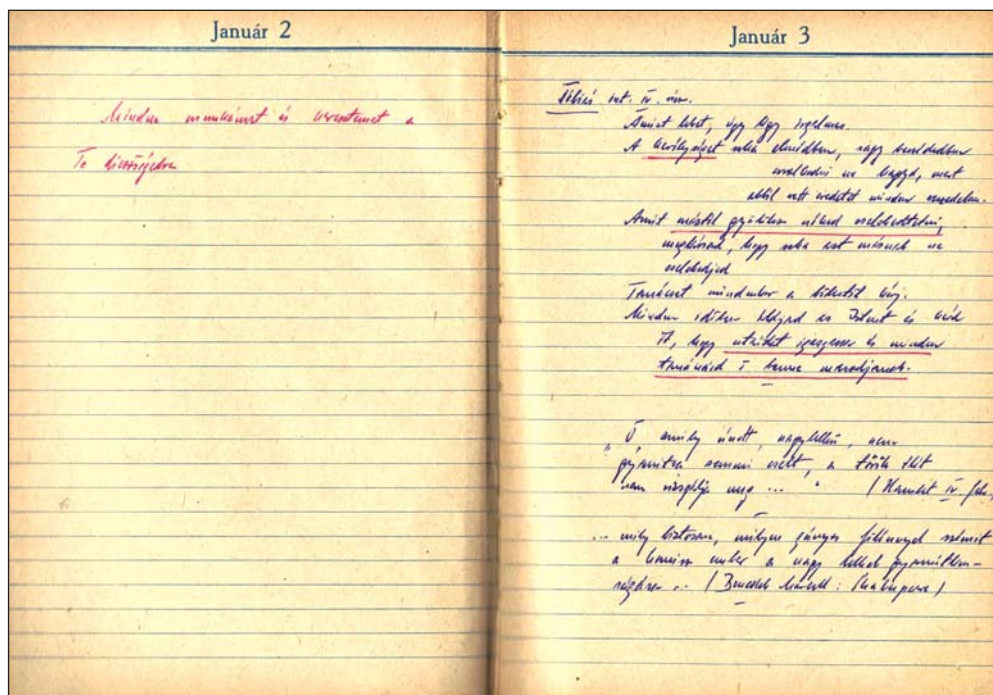 Január 2
Minden munkámat és keresztemet a
Te dicsőségedre
Január 3
Tóbiás int. IV. ...
Amint lehet, úgy légy irgalmas.
A kevélységet soha elmédben, vagy beszédedben
uralkodni ne hagyd, mert
abból vett eredetet minden veszedelem.
Amit mástól gyűlölsz néked cselekedtetni,
meglássad, hogy soha ezt másnak ne
cselekedjed
Tanácsot mindenkor a bölcstől kérj.
Minden időben áldjad az Istent és kérd
Őt, hogy utaidat igazgassa és minden
tanácsaid Ő benne maradjanak.
„Ő, amily únott, nagylelkű, nem
gyanítva semmi cselt, a tőrök élit
nem vizsgálja meg ... " (Hamlet IV. felv.)
... mily biztosan, milyen fölénnyel számít
a komisz ember a nagy lelkek gyanútlan-
ságára ... (Benedek Marcell: Shakespeare)